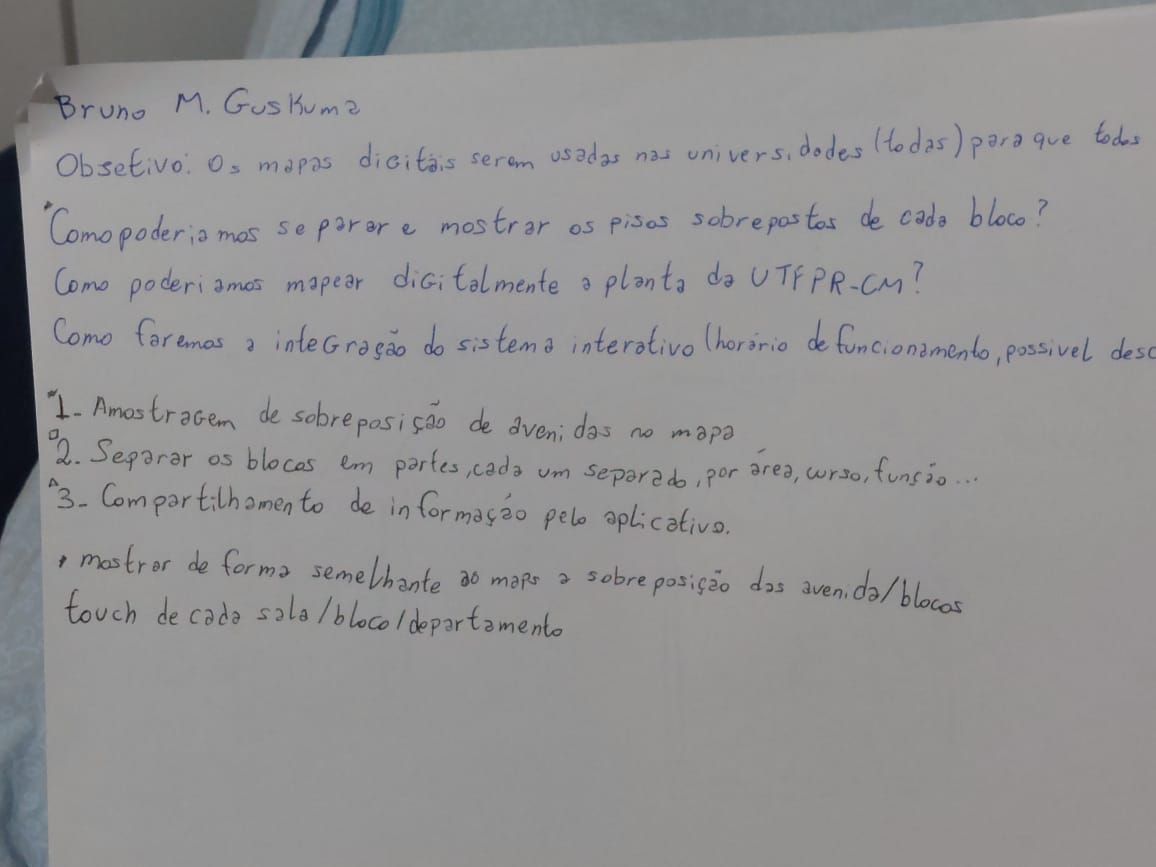 Bruno M. Guskuma
Obsetivo: Os mapas digitais serem usadas nas universidades (todas) para que todos
*Como poderiamos separar e mostrar os pisos sobrepostos de cada bloco?
Como poderiamos mapear digitalmente a planta da UTFPR-CM?
Como faremos a integração do sistema interativo (horário de funcionamento, possivel desc
*1- Amostragem de sobreposição de avenidas no mapa
□2. Separar os blocos em partes, cada um separado, por área, curso, função...
△3- Compartilhamento de informação pelo aplicativo.
• mostrar de forma semelhante ao maps a sobreposição das avenida/blocos
touch de cada sala/bloco/departamento